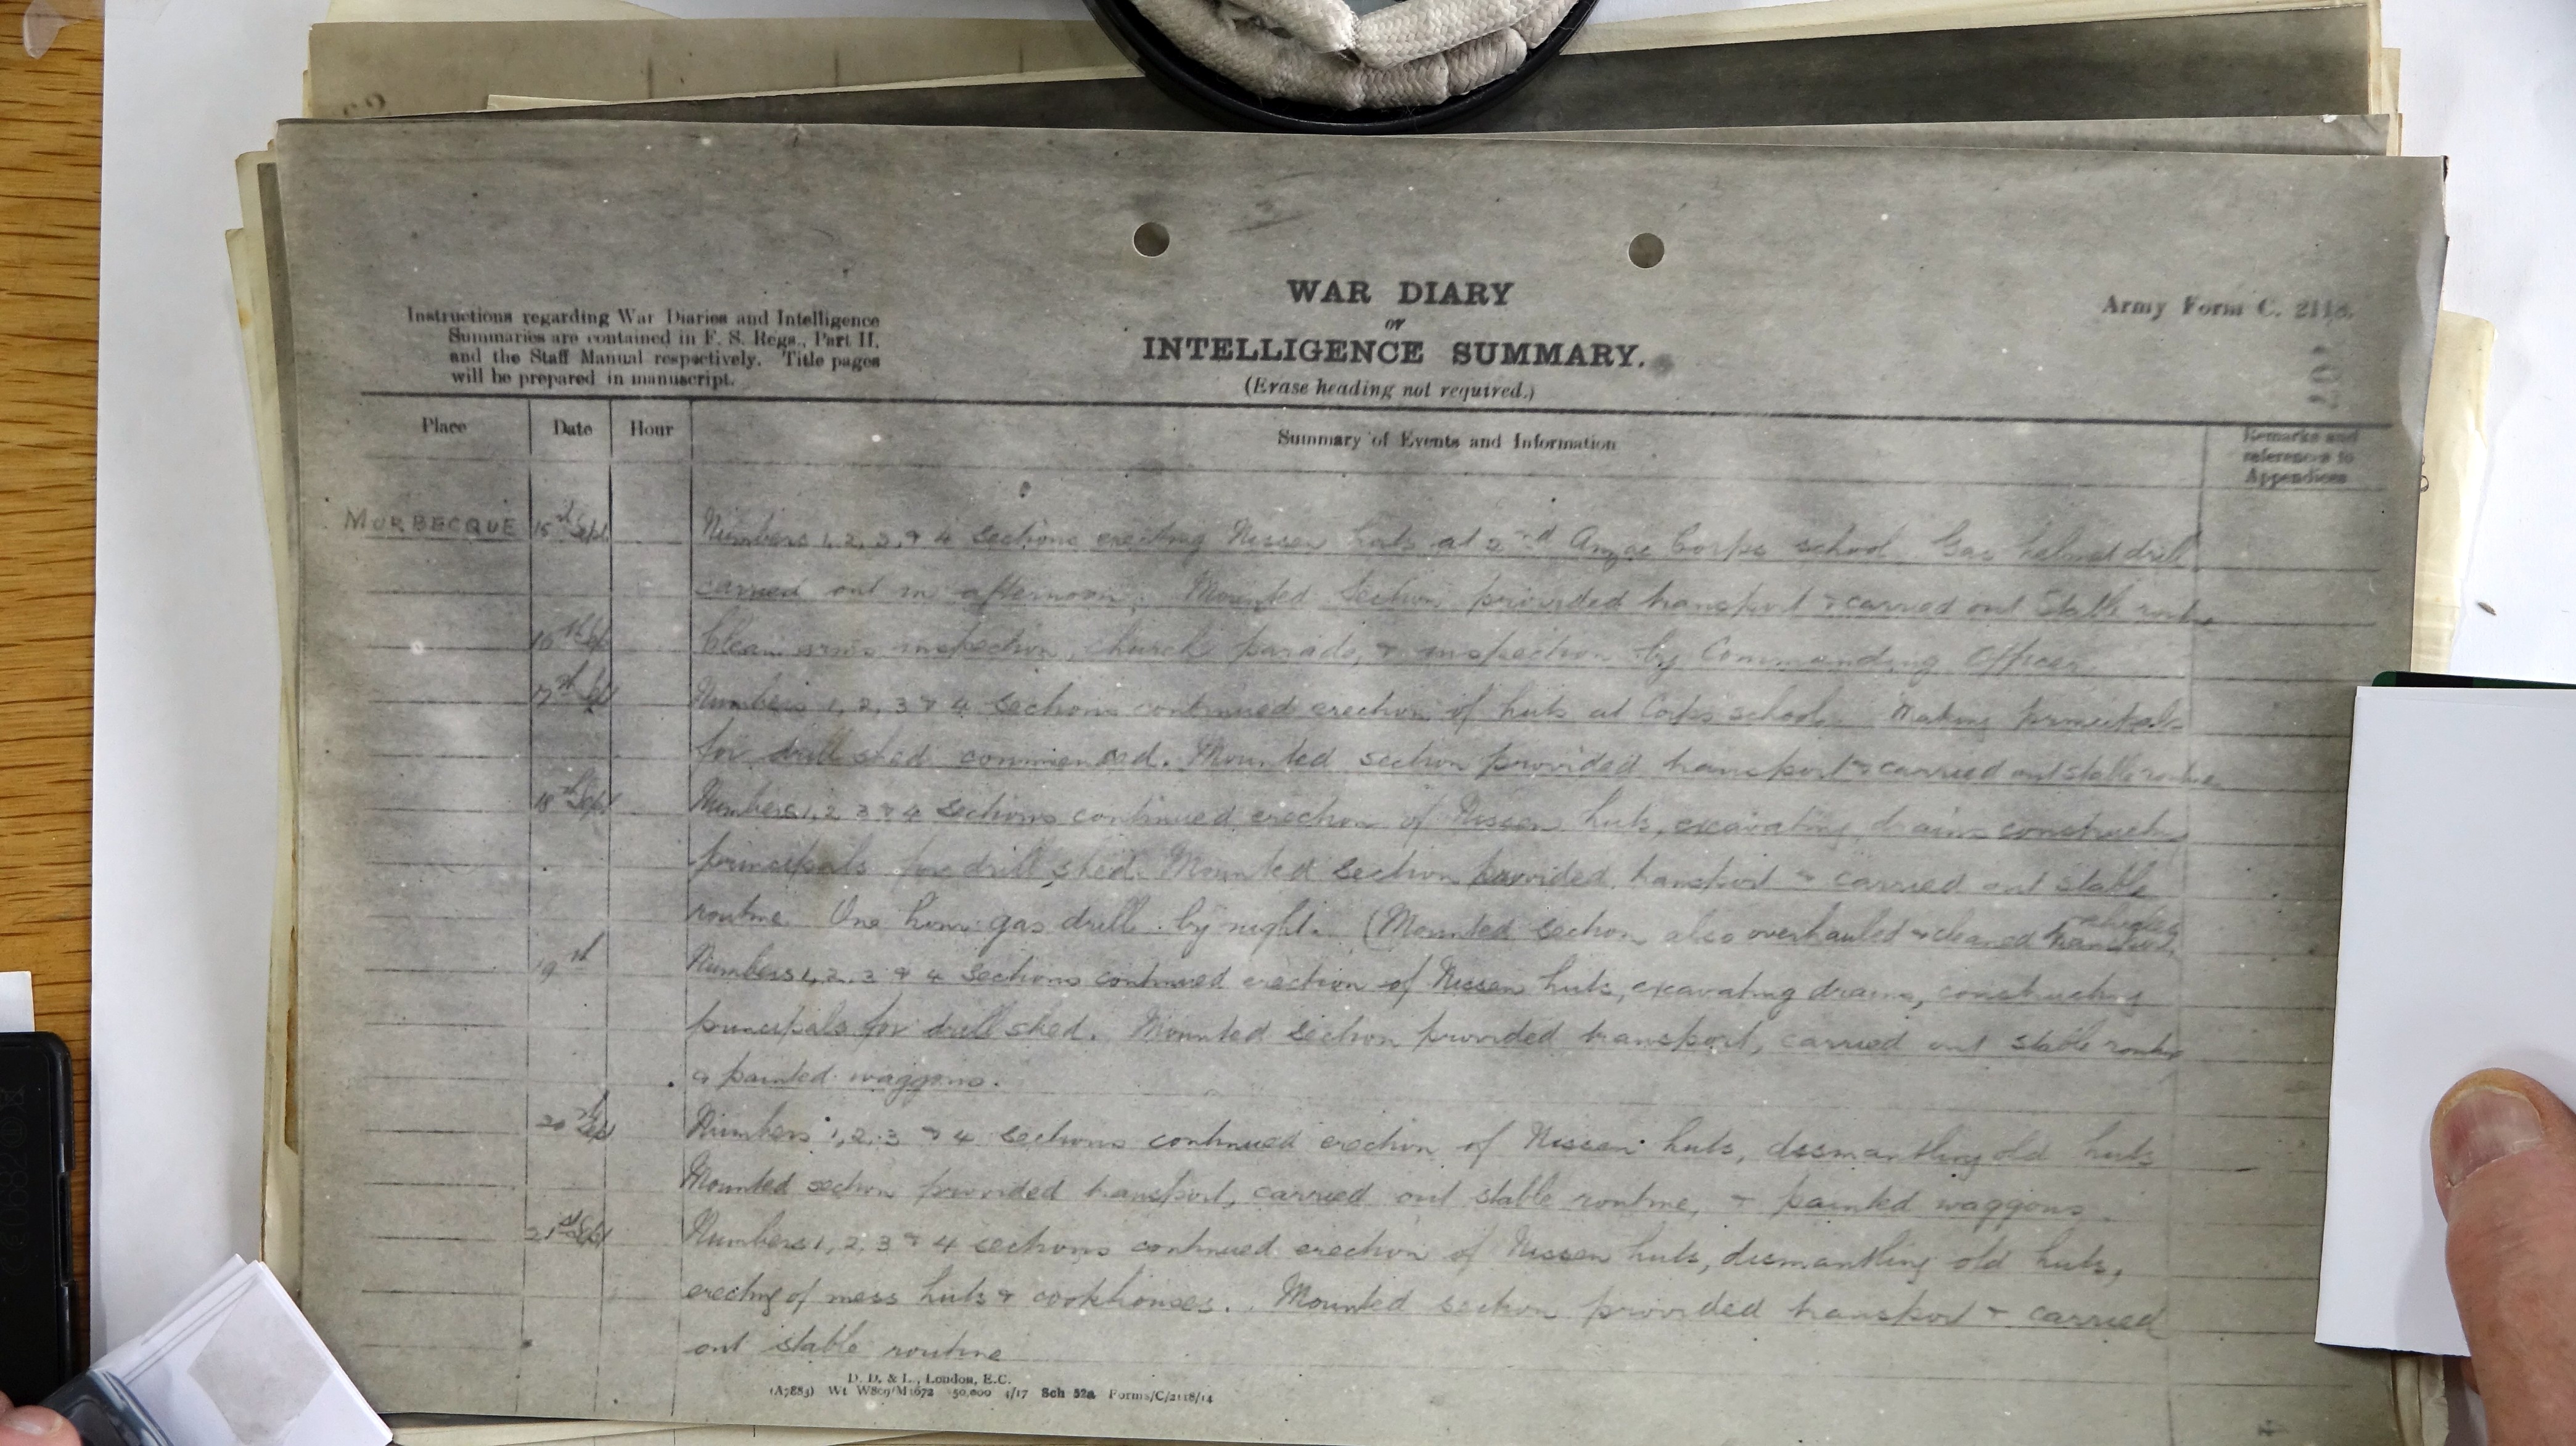 WAR DIARY
or
INTELLIGENCE SUMMARY.
(Erase heading not required.)
Army Form C. 2118.
Instructions regarding War Diaries and Intelligence
Summaries are contained in F. S. Regs., Part II.
and the Staff Manual respectively. Title pages
will be prepared in manuscript.
Place Date Hour Summary of Events and Information Remarks and references to Appendices
MORBECQUE 15th Sept Numbers 1, 2, 3, & 4 Sections erecting Nissen huts at 2nd Anzac Corps school. Gas helmet drill
carried out in afternoon. Mounted Section provided transport & carried out Stable routine
16th Sept Clean arms inspection, church parade, & inspection by Commanding Officer
17th Sept Numbers 1, 2, 3 & 4 sections continued erection of huts at Corps school. Making principals
for drill shed commenced. Mounted section provided transport & carried out stable routine
18th Sept Numbers 1, 2, 3 & 4 sections continued erection of Nissen huts, excavating drains constructing
principals for drill shed. Mounted section provided transport & carried out stable
routine. One hour gas drill by night. (Mounted section also overhauled & cleaned vehicles
19th Numbers 1, 2, 3 & 4 sections continued erection of Nissen huts, excavating drains, constructing
principals for drill shed. Mounted section provided transport, carried out stable routine
& painted waggons.
20th Sept Numbers 1, 2, 3 & 4 sections continued erection of Nissen huts, dismantling old huts
Mounted section provided transport, carried out stable routine, & painted waggons.
21st Sept Numbers 1, 2, 3 & 4 sections continued erection of Nissen huts, dismantling old huts,
erecting of mess huts & cookhouses. Mounted section provided transport & carried
out stable routine
D. D. & L., London, E.C.
(A7883) Wt W809/M1672 50,000 4/17 Sch 52a Forms/C/2118/14